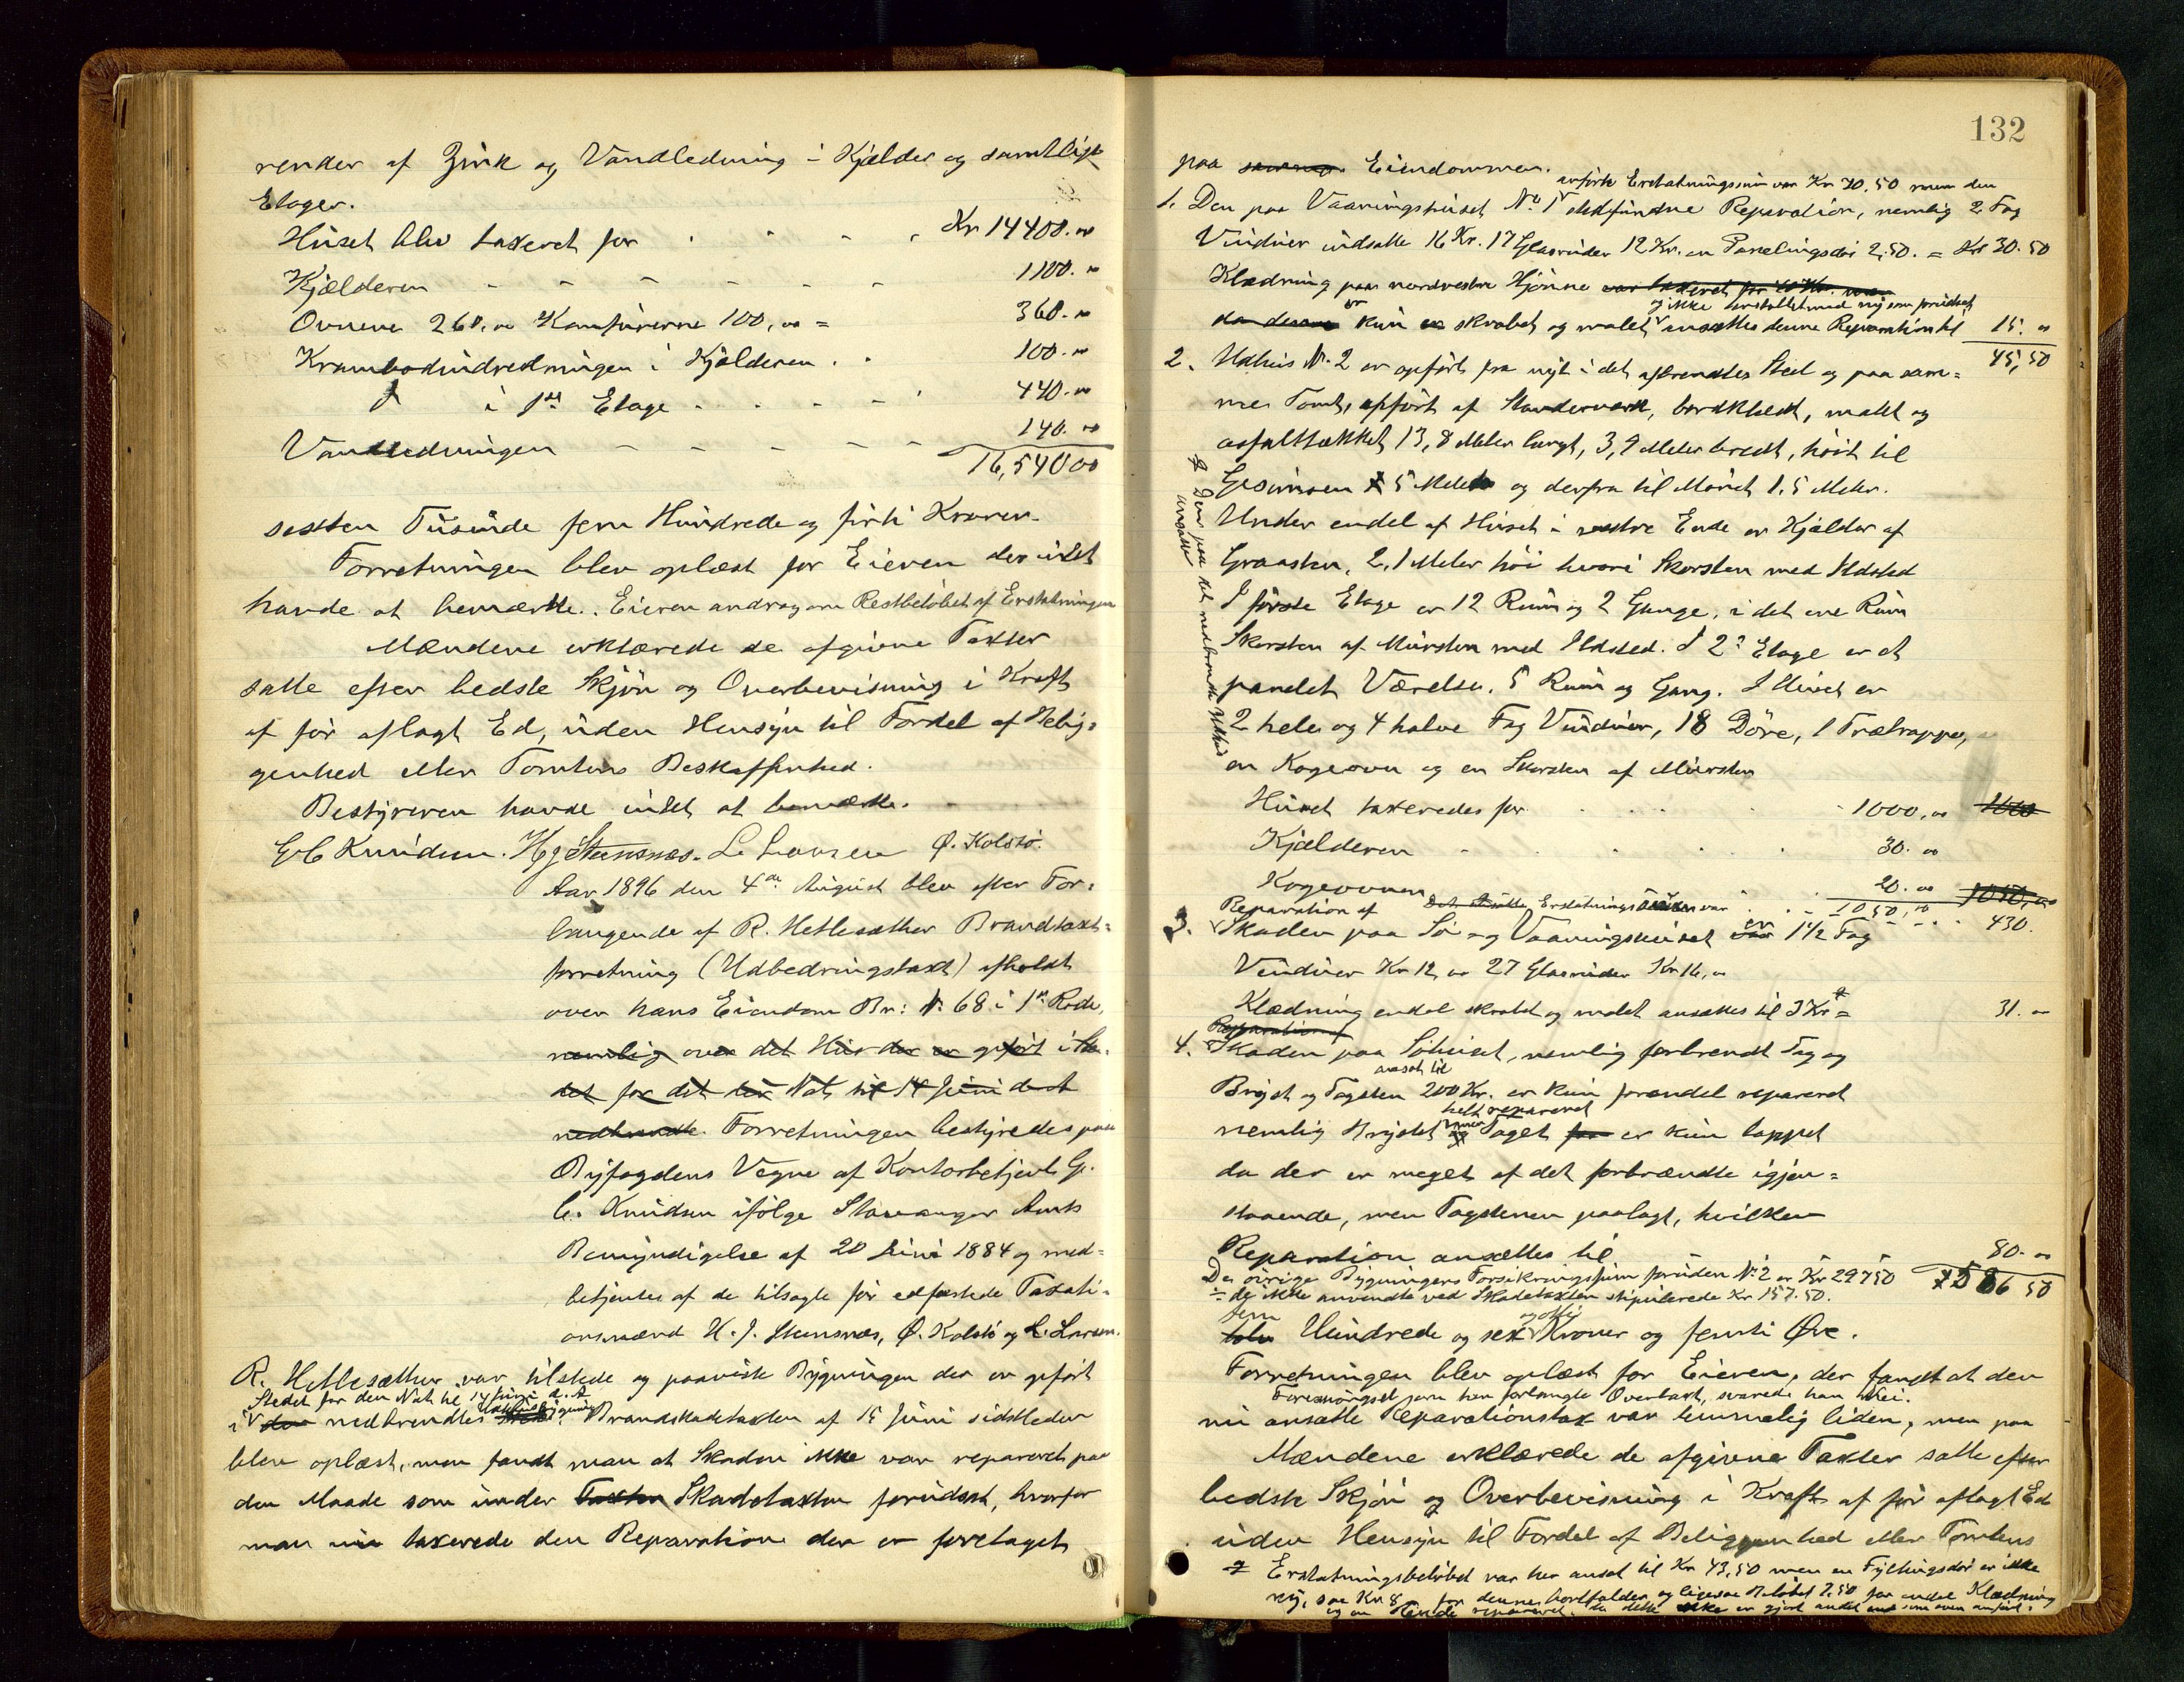 render af Zink og Vandledning i Kjælder og samtlige
Etager.
Huset blev taxeret for Kr 14400.00
Kjælderen - - - - - - 1100.00
Ovnene 260,00 Komfurerne 100,00 = 360.00
Krambodindredningen i Kjælderen . . 100.00
i 1ste Etage - - - - 440.00
Vandledningen - - - - - 140.00
16,540 00
sexten Tusinde fem Hundrede og firti Kroner.
Forretningen blev oplæst for Eieren der intet
havde at bemærke. Eieren androg om Restbeløbet af Erstatningen
Mændene erklærede de afgivne Taxter
satte efter bedste Skjøn og Overbevisning i Kraft
af før aflagt Ed, uden Hensyn til Fordel af Belig=
genhed eller Tomtens Beskaffenhed.
Bestyreren havde intet at bemærke.
G C Knudsen. H J Stensnæs. L Larsen Ø. Kolstø.
Aar 1896 den 4de August blev efter For=
langende af R. Hetlesæther Brandtaxt=
forretning (Udbedringstaxt) afholdt
over hans Eiendom Br: No 68 i 1ste Rode,
nemlig over det Hus der er opført i Ste=
det for det der Nat til 14 Juni d. A.
nedbrændte. Forretningen bestyredes paa
Byfogdens Vegne af Kontorbetjent G.
C. Knudsen ifølge Stavanger Amts
Bemyndigelse af 20 Juni 1884 og med=
betjentes af de tilsagte før edfæstede Taxati=
onsmænd H. J. Stensnæs, Ø. Kolstø og L. Larsen.
R. Hetlesæther var tilstede og paaviste Bygningen der er opført
Stedet for den Nat til 14 Juni d. A.
i nedbrændtes Brandskadetaxten af 15 Juni sidstleden
blev oplæst, men fandt man at Skaden ikke var repareret paa
den Maade som under Taxten Skadetaxten forudsat, hvorfor
man nu taxerede den Reparation der er foretaget
132
paa samme Eiendommen.
anførte Erstatningssum var Kr 70.50 men den
1. Den paa Vaaningshuset No 1 stedfundne Reparation, nemlig 2 Fag
Vinduer indsatte 16 Kr. 17 Glasruder 12 Kr. en Panelingsdør 2,50. = Kr 30.50
Klædning paa nordvestre Hjørne var taxeret for 40 Kr. men
og ikke erstattet med ny som forudsat
da denne er kun er skrabet og malet ansættes denne Reparation til 15.00
45,50
2. Udhus No 2 er opført fra nyt i det afbrændtes Sted og paa sam=
me Tomt, opført af Standerværk, bordklædt, malet og
asfalttækket 13,8 Meter langt, 3,9 Meter bredt, høit til
Gesimsen 5 Meter og derfra til Mønet 1.5 Meter.
Under endel af Huset i vestre Ende er Kjælder af
Graasten, 2,1 Meter høi hvori Skorsten med Ildsted
I første Etage er 12 Rum og 2 Gange, i det ene Rum
Skorsten af Mursten med Ildsted. I 2. Etage er et
panelet Værelse, 5 Rum og Gang. I Huset er
2 hele og 4 halve Fag Vinduer, 18 Døre, 1 Trætrappe,
en Kogeovn og en Skorsten af Mursten
Den paa det nedbrændte Udhus
ansatte
Huset taxeredes for . . . . 1000,00 1000
Kjælderen . . . . 30.00
Kogeovnen 20.00 1050,00
Erstatningssum var . . 1050,00 - - . . 430.
Reparation af
3. Skaden paa Sø og Vaaningshuset er 1 1/2 Fag
Vinduer Kr 12,00 27 Glasruder Kr 16,00
Klædning endel skrabet og malet ansættes til 3 Kr = 31.00
Reparation af
4. Skaden paa Søhuset, nemlig forbrendt Tag og
ansat til
Bryst og Tagsten 200 Kr. er kun forendel repareret
helt repareret
nemlig Brystet men Taget er kun lappet
da der er meget af det forbrændte igjen=
staaende, men Tagstenen paalagt, hvilken
Reparation ansættes til 80.00
De øvrige Bygningers Forsikringssum foruden No 2 er Kr 29750 586 50
÷ de ikke anvendte ved Skadetaxten stipulerede Kr 157.50.
fem
Hundrede og sex og otti Kroner og femti Øre.
Forretningen blev oplæst for Eieren, der fandt at den
Forespurgt om han forlangte Overtaxt, svarede han Nei.
nu ansatte Reparationstax var temmelig liden, men paa
Mændene erklærede de afgivne Taxter satte efter
bedste Skjøn og Overbevisning i Kraft af før aflagt Ed
uden Hensyn til Fordel af Beliggenhed eller Tomtens
Erstatningsbeløbet var her ansat til Kr 43,50 men en Fyldingsdør er ikke
ny, saa Kr 8 for denne bortfalder og ligesaa Beløbet 7,50 for endel Klædning